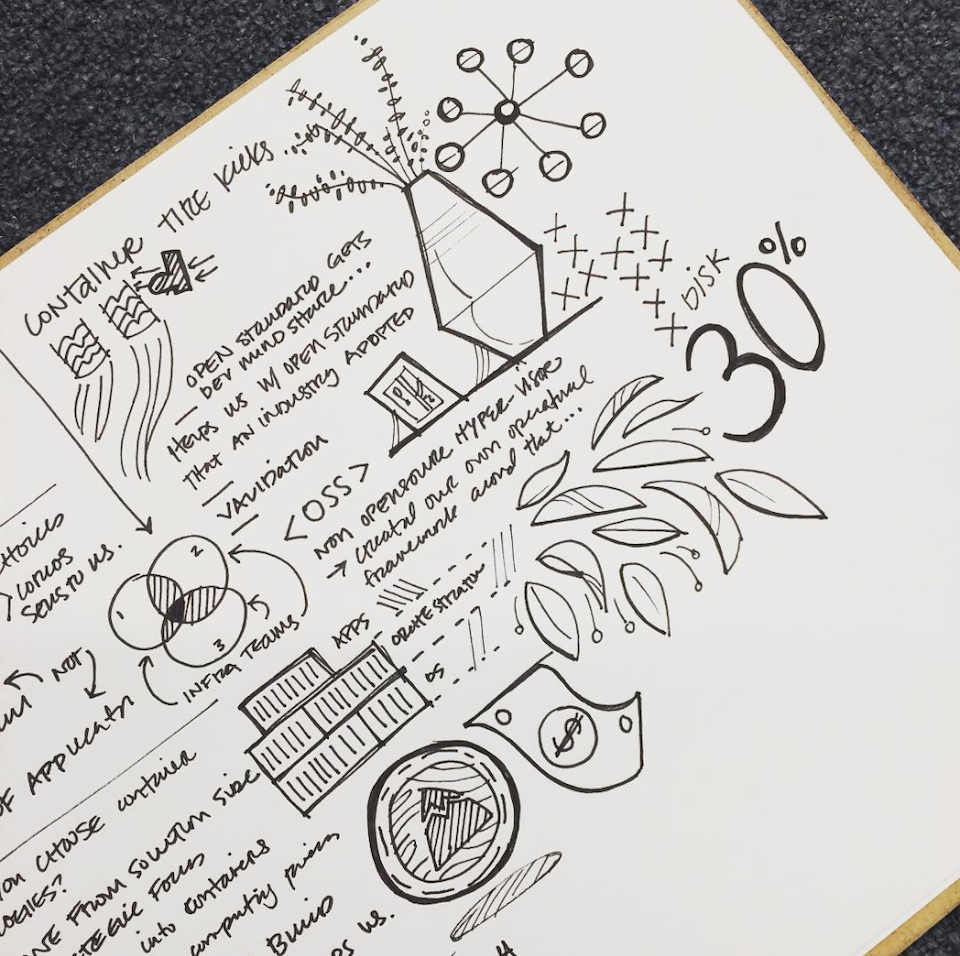 CONTAINER TIRE KICKS...
OPEN STANDARD GETS
DEV MIND SHARE....
HELPS US W/ OPEN STANDARD
THAT AN INDUSTRY ADOPTED
VALIDATION
<OSS>
NON OPENSOURCE HYPER-VISOR
→ Created our own operational
framework around that...
DISK
30%
CHOICES
SENSE TO US.
1
2
3
INFRA TEAMS
NOT
OF APPLICATION
APPS
ORCHESTRATION
OS
$
YOU CHOOSE container
FROM SOLUTION SIDE
FOCUS
into containers
computing
BUILD
US.